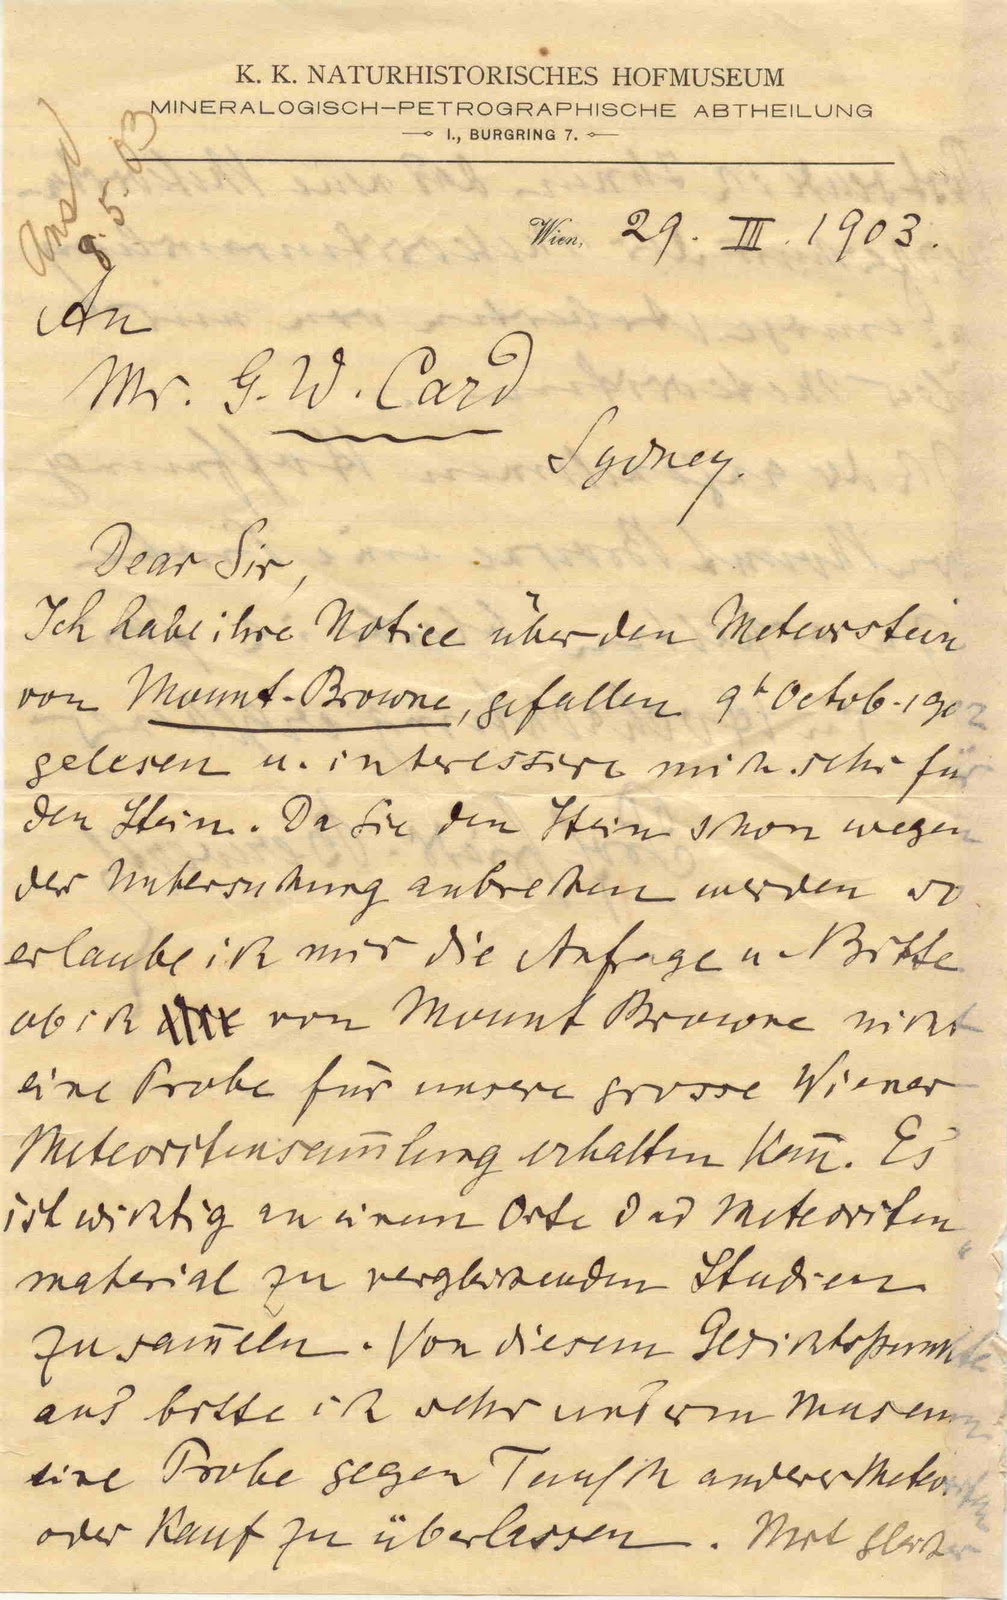 K. K. NATURHISTORISCHES HOFMUSEUM
MINERALOGISCH-PETROGRAPHISCHE ABTHEILUNG
I., BURGRING 7.
Ansd
8.5.03
Wien, 29. III. 1903.
An
Mr. G. W. Card
Sydney.
Dear Sir,
Ich habe ihre Notice über den Meteorstein
von Mount-Browne, gefallen 9th Octob. 1902
gelesen u. interessire mich sehr für
den Stein. Da Sie den Stein schon wegen
der Untersuchung anbrechen werden so
erlaube ich mir die Anfrage u. Bitte
ob ich von Mount Browne nicht
eine Probe für unsere grosse Wiener
Meteoritensam̄lung erhalten kan̄. Es
ist wichtig an einem Orte das Meteoriten
material zu vergleichenden Studien
zu sam̄eln. Von diesem Gesichtspunkte
aus bitte ich sehr unserem Museum
eine Probe gegen Tausch anderer Meteoriten
oder Kauf zu überlassen. Mit gleicher